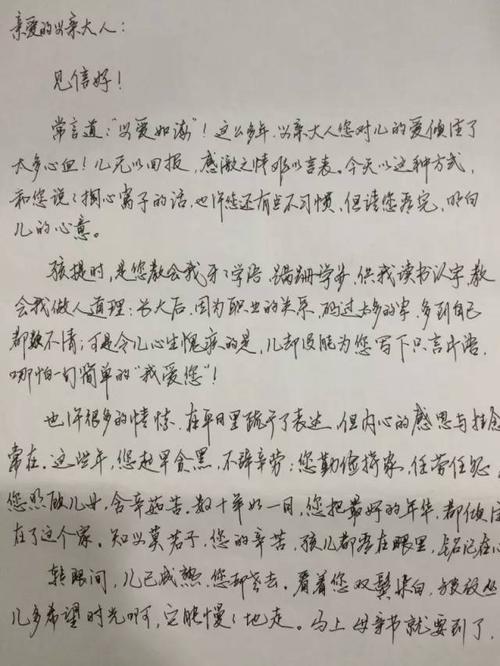 亲爱的母亲大人：
见信好！
常言道："母爱如海"！这么多年，母亲大人您对儿的爱倾注了
太多心血！儿无以回报，感激之情难以言表。今天以这种方式，
和您说说掏心窝子的话，也许您还有点不习惯，但请您看完，明白
儿的心意。
孩提时，是您教会我牙牙学语、蹒跚学步，供我读书认字，教
会我做人道理；长大后，因为职业的关系，码过太多的字，多到自己
都数不清；可是令儿心生愧疚的是，儿却没能为您写下只言片语，
哪怕一句简单的"我爱您"！
也许很多的情愫，在平日里疏于了表达，但内心的感恩与挂念
常在。这些年，您起早贪黑，不辞辛劳；您勤俭持家，任劳任怨，
您照顾儿女，含辛茹苦，数十年如一日，您把最好的年华，都倾注
在了这个家。知母莫若子，您的辛苦，孩儿都看在眼里，铭记在心
转眼间，儿已成熟，您却老去。看着您双鬓染白，
儿多希望时光啊，它能慢慢地走。马上母亲节就要到了，